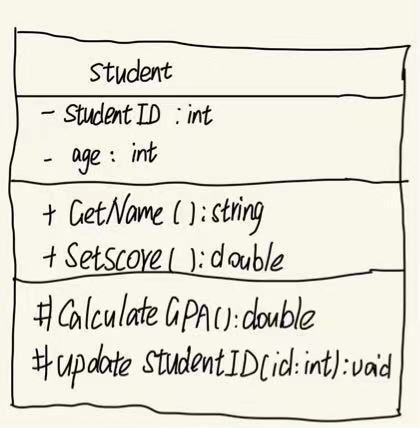 Student
- StudentID : int
- age : int
+ GetName () : string
+ Setscore ( ) : double
# Calculate GPA() : double
# update StudentID(id:int) : void